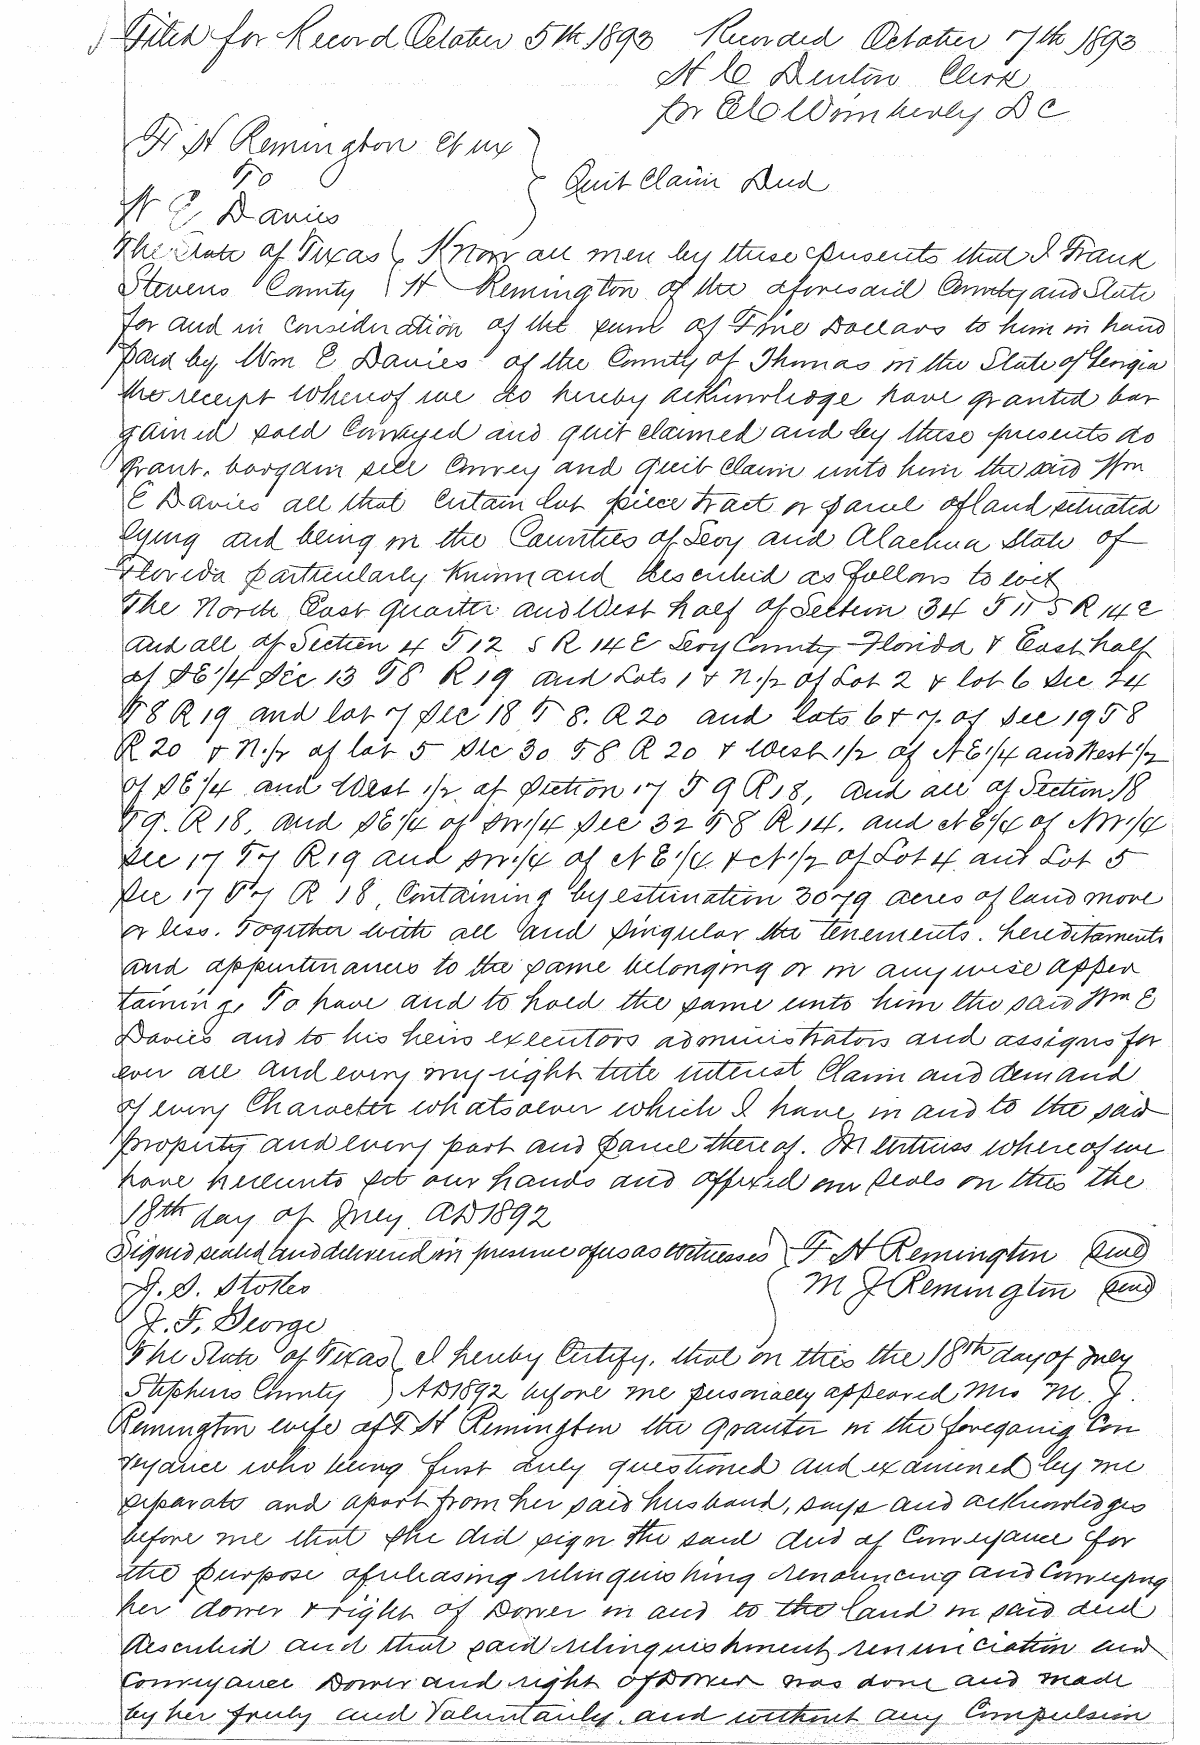 Filed for Record October 5th 1893 Recorded October 7th 1893
H C Denton Clerk
for E C Wimberly D C
F H Remington et ux
To
Quit Claim Deed
W E Davies
The State of Texas Know all men by these presents that I Frank
Stevens County H Remington of the aforesaid County and State
for and in consideration of the sum of Five Dollars to him in hand
paid by Wm E Davies of the County of Thomas in the State of Georgia
the receipt whereof we do hereby acknowledge have granted bar
gained sold Conveyed and quit claimed and by these presents do
grant. bargain sell Convey and quit Claim unto him the said Wm
E Davies all that certain lot piece tract or parcel of land situated
lying and being in the Counties of Levy and Alachua State of
Florida particularly known and described as follows to wit
The North East quarter and West half of Section 34 T 11 S R 14 E
and all of Section 4 T 12 S R 14 E Levy County Florida & East half
of SE 1/4 Sec 13 T8 R 19 and Lots 1 & N. 1/2 of Lot 2 & lot 6 Sec 24
T8 R 19 and lot 7 Sec 18 T 8. R 20 and lots 6 & 7. of Sec 19 T 8
R 20 & N. 1/2 of lot 5 Sec 30 T8 R 20 & West 1/2 of N E 1/4 and West 1/2
of SE 1/4 and West 1/2 of Section 17 T 9 R 18, and all of Section 18
T9. R 18, and SE 1/4 of SW 1/4 Sec 32 T8 R 14. and N E 1/4 of NW 1/4
Sec 17 T7 R 19 and SW 1/4 of N E 1/4 & N 1/2 of Lot 4 and Lot 5
Sec 17 T7 R 18, Containing by estimation 3079 acres of land more
or less. Together with all and singular the tenements. hereditaments
and appurtenances to the same belonging or in anywise apper
taining, To have and to hold the same unto him the said Wm E
Davies and to his heirs executors administrators and assigns for
ever all and every my right title interest Claim and demand
of every Character whatsoever which I have in and to the said
property and every part and parcel thereof. In witness whereof we
have hereunto set our hands and affixed our seals on this the
18th day of July AD 1892
Signed sealed and delivered in presence of us as witnesses F H Remington Seal
J. S. Stokes M J Remington Seal
J. F. George
The State of Texas I hereby Certify, that on this the 18th day of July
Stephens County AD 1892 before me personally appeared Mrs M. J.
Remington wife of F H Remington the grantor in the foregoing Con
veyance who being first duly questioned and examined by me
separate and apart from her said husband, says and acknowledges
before me that she did sign the said deed of Conveyance for
the purpose of releasing relinquishing renouncing and Conveying
her dower & right of Dower in and to the land in said deed
described and that said relinquishment renunciation and
Conveyance Dower and right of Dower was done and made
by her freely and Voluntarily and without any Compulsion